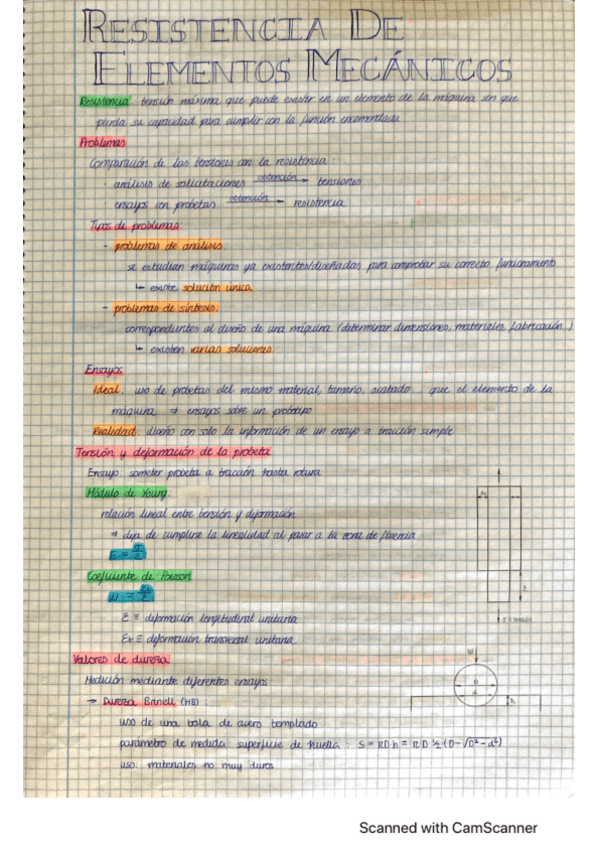 RESISTENCIA DE
ELEMENTOS MECÁNICOS
Resistencia: tensión máxima que puede existir en un elemento de la máquina sin que
pierda su capacidad para cumplir con la función encomendada
Problemas
Comparación de las tensiones con la resistencia:
· análisis de solicitaciones obtención → tensiones
· ensayos con probetas obtención → resistencia
Tipos de problemas:
- problemas de análisis
se estudian máquinas ya existentes/diseñadas para comprobar su correcto funcionamiento
↳ existe solución única
- problemas de síntesis:
correspondientes al diseño de una máquina (determinar dimensiones, materiales, fabricación..)
↳ existen varias soluciones
Ensayos
Ideal: uso de probetas del mismo material, tamaño, acabado... que el elemento de la
máquina ⇒ ensayos sobre un prototipo
Realidad: diseño con solo la información de un ensayo a tracción simple
Tensión y deformación de la probeta
Ensayo: someter probeta a tracción hasta rotura
Módulo de Young:
relación lineal entre tensión y deformación
⇒ deja de cumplirse la linealidad al pasar a la zona de fluencia
E =
Coeficiente de Poisson
μ =
ε ≡ deformación longitudinal unitaria
≡ deformación transversal unitaria
Valores de dureza
Medición mediante diferentes ensayos
→ Dureza Brinell (HB)
uso de una bola de acero templado
parámetro de medida: superficie de huella: S = πDh = πD ½ (D-√D²-d²)
uso: materiales no muy duros
D
d
h
Scanned with CamScanner